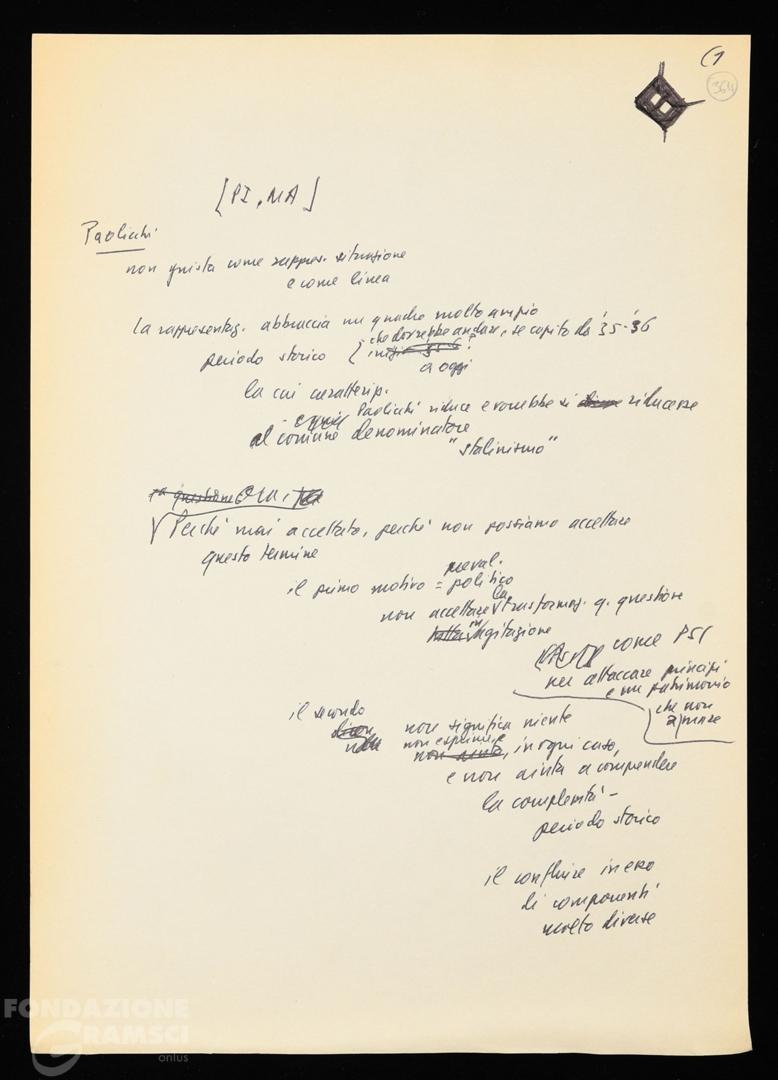 (1
364
[PI, MA]
Paolicchi
non giusta come rappres. situazione
e come linea
la rappresentaz. abbraccia un quadro molto ampio
che dovrebbe andare, se capito da '35-'36
periodo storico
a oggi
la cui caratteriz.
Paolicchi riduce e vorrebbe si ridurre
al comune denominatore
"stalinismo"
la questione
Perché mai accettato, perché non possiamo accettare
questo termine
preval.
il primo motivo = politico
non accettare la trasformaz. q. questione
tutta in agitazione
come PSI
per attaccare principi
e un patrimonio
che non
il secondo
non significa niente
non esprime
non aiuta, in ogni caso,
e non aiuta a comprendere
la complessità -
periodo storico
il confluire in esso
di componenti
molto diverse
FONDAZIONE
GRAMSCI
onlus